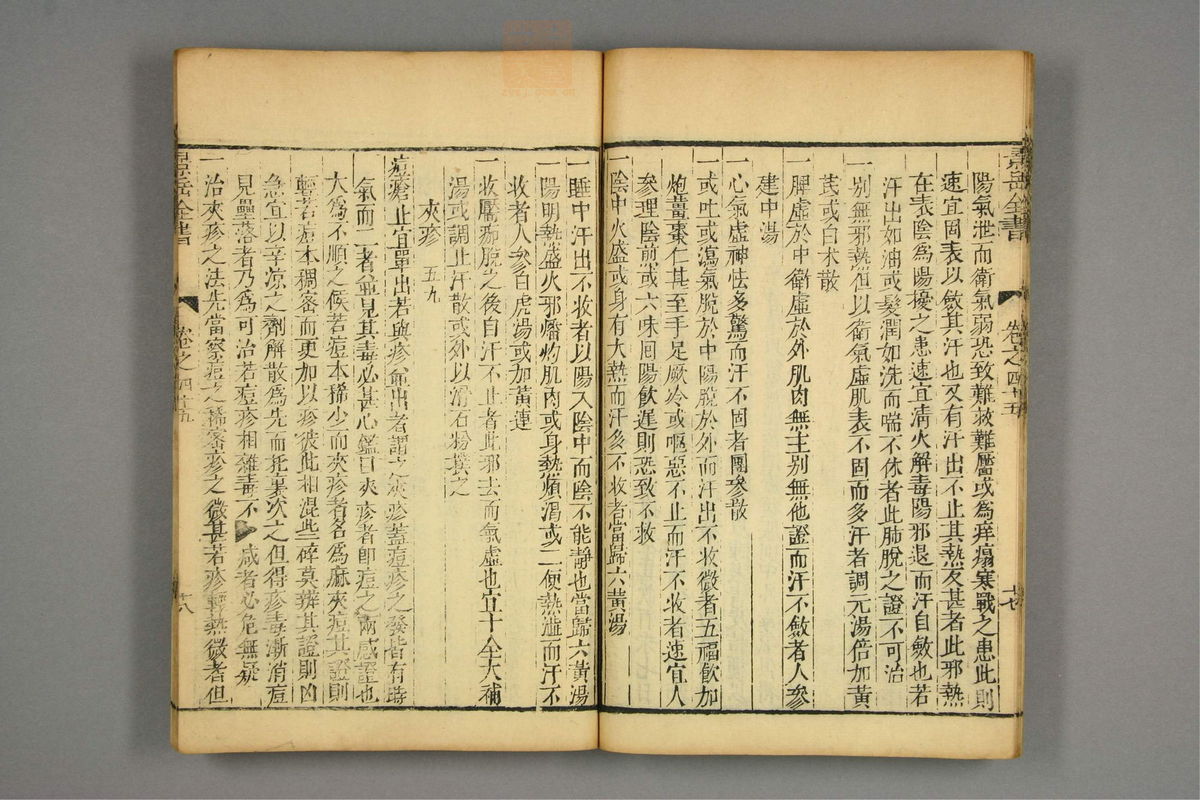 景岳全書
卷之四十五
陽氣泄而衛氣弱恐致難救難靨或爲痒塌寒戰之患此則
速宜固表以斂其汗也又有汗出不止其熱反甚者此邪熱
在表陰爲陽擾之患速宜清火解毒陽邪退而汗自斂也若
汗出如油或髮潤如洗而喘不休者此肺脫之證不可治
一別無邪熱但以衛氣虛肌表不固而多汗者調元湯倍加黃
芪或白朮散
一脾虛於中衛虛於外肌肉無主別無他證而汗不斂者人參
建中湯
一心氣虛神怯多驚而汗不固者團參散
一或吐或瀉氣脫於中陽脫於外而汗出不收微者五福飲加
炮薑棗仁甚至手足厥冷或嘔惡不止而汗不收者速宜人
參理陰煎或六味囘陽飲遲則恐致不救
一陰中火盛或身有大熱而汗多不收者當歸六黃湯
一睡中汗出不收者以陽入陰中而陰不能靜也當歸六黃湯
一陽明熱盛火邪燔灼肌肉或身熱煩渴或二便熱澁而汗不
收者人參白虎湯或加黃連
一收靨痂脫之後自汗不止者此邪去而氣虛也宜十全大補
湯或調止汗散或外以滑石粉撲之
夾疹 五九
痘瘡止宜單出若與疹並出者謂之夾疹蓋痘疹之發皆有時
氣而二者並見其毒必甚心鑑曰夾疹者卽痘之兩感證也
大爲不順之候若痘本稀少而夾疹者名爲麻夾痘其證則
輕若痘本稠密而更加以疹彼此相混些碎莫辨其證則凶
急宜以辛涼之劑解散爲先而托裏次之但得疹毒漸消痘
見壘落者乃爲可治若痘疹相雜毒不 咸者必危無疑
一治夾疹之法先當察痘之稀密疹之微甚若疹輕熱微者但
景岳全書
卷之四十五
十八